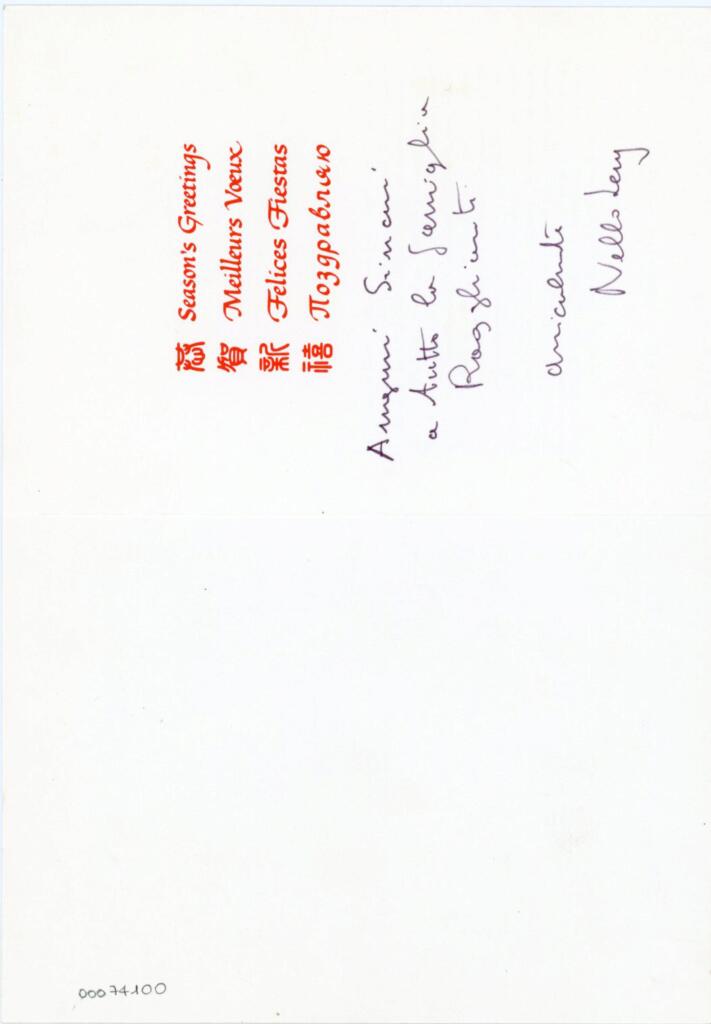 恭 Season's Greetings
賀 Meilleurs Vœux
新 Felices Fiestas
禧 Поздравляю
Auguri Sinceri
a tutta la famiglia
Ragghianti
amicalmente
Nello Levy
00074100